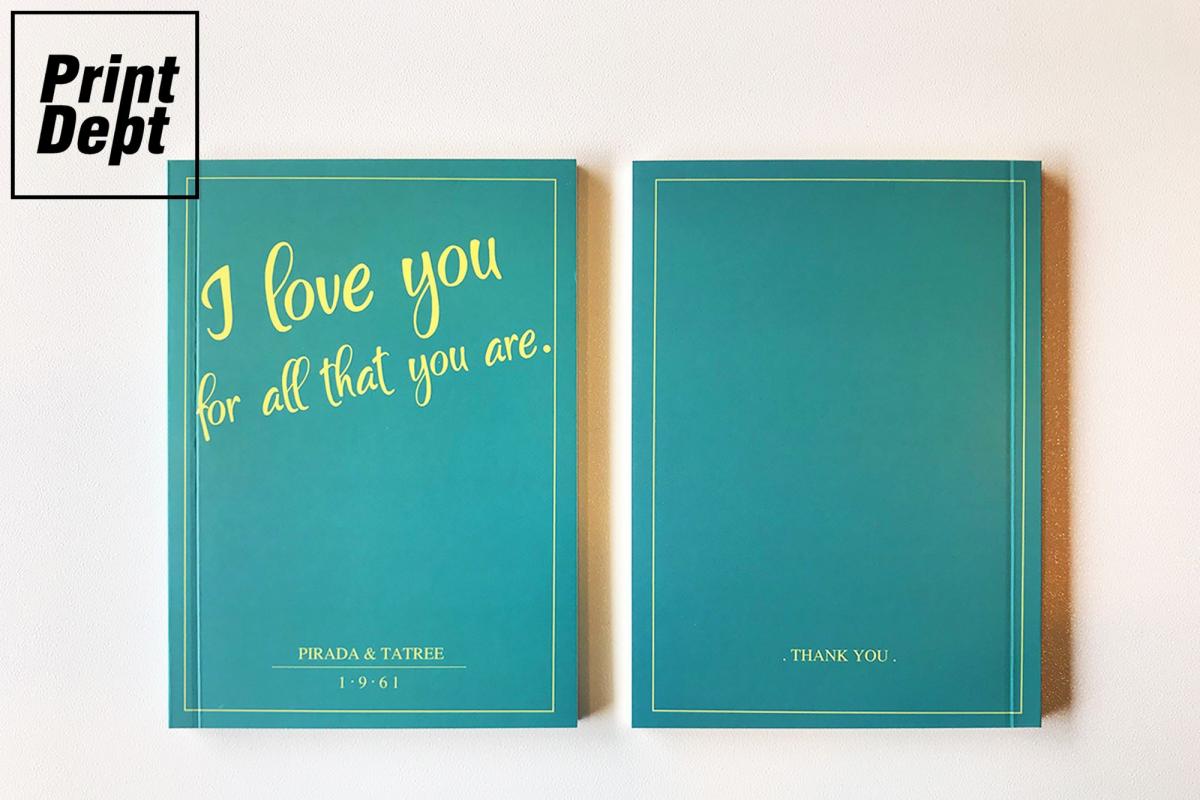 Print
Dept
I love you
for all that you are.
PIRADA & TATREE
1·9·61
. THANK YOU .